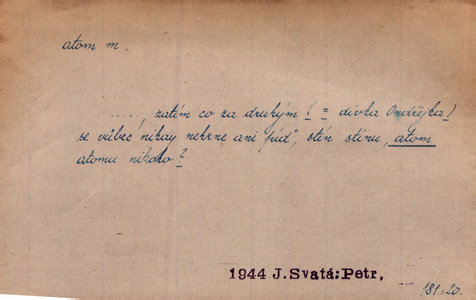 atom m.
....., zatím co za druhým ( = dívka Ondřejka )
se vůbec nikdy nehrne ani píď, stín stínu, atom
atomu nikoho?
1944 J.Svatá:Petr,
181,20.